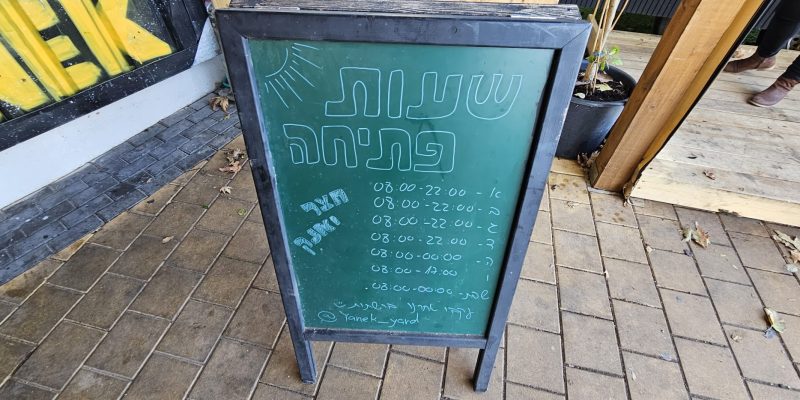 NEK
שעות
פתיחה
חצר
יאנק
א - 08:00-22:00
ב - 08:00-22:00
ג - 08:00-22:00
ד - 08:00-22:00
ה - 08:00-00:00
ו 08:00-17:00
שבת - 08:00-00:00.
עקבו אחרינו ברשתות
@Yanek_yard